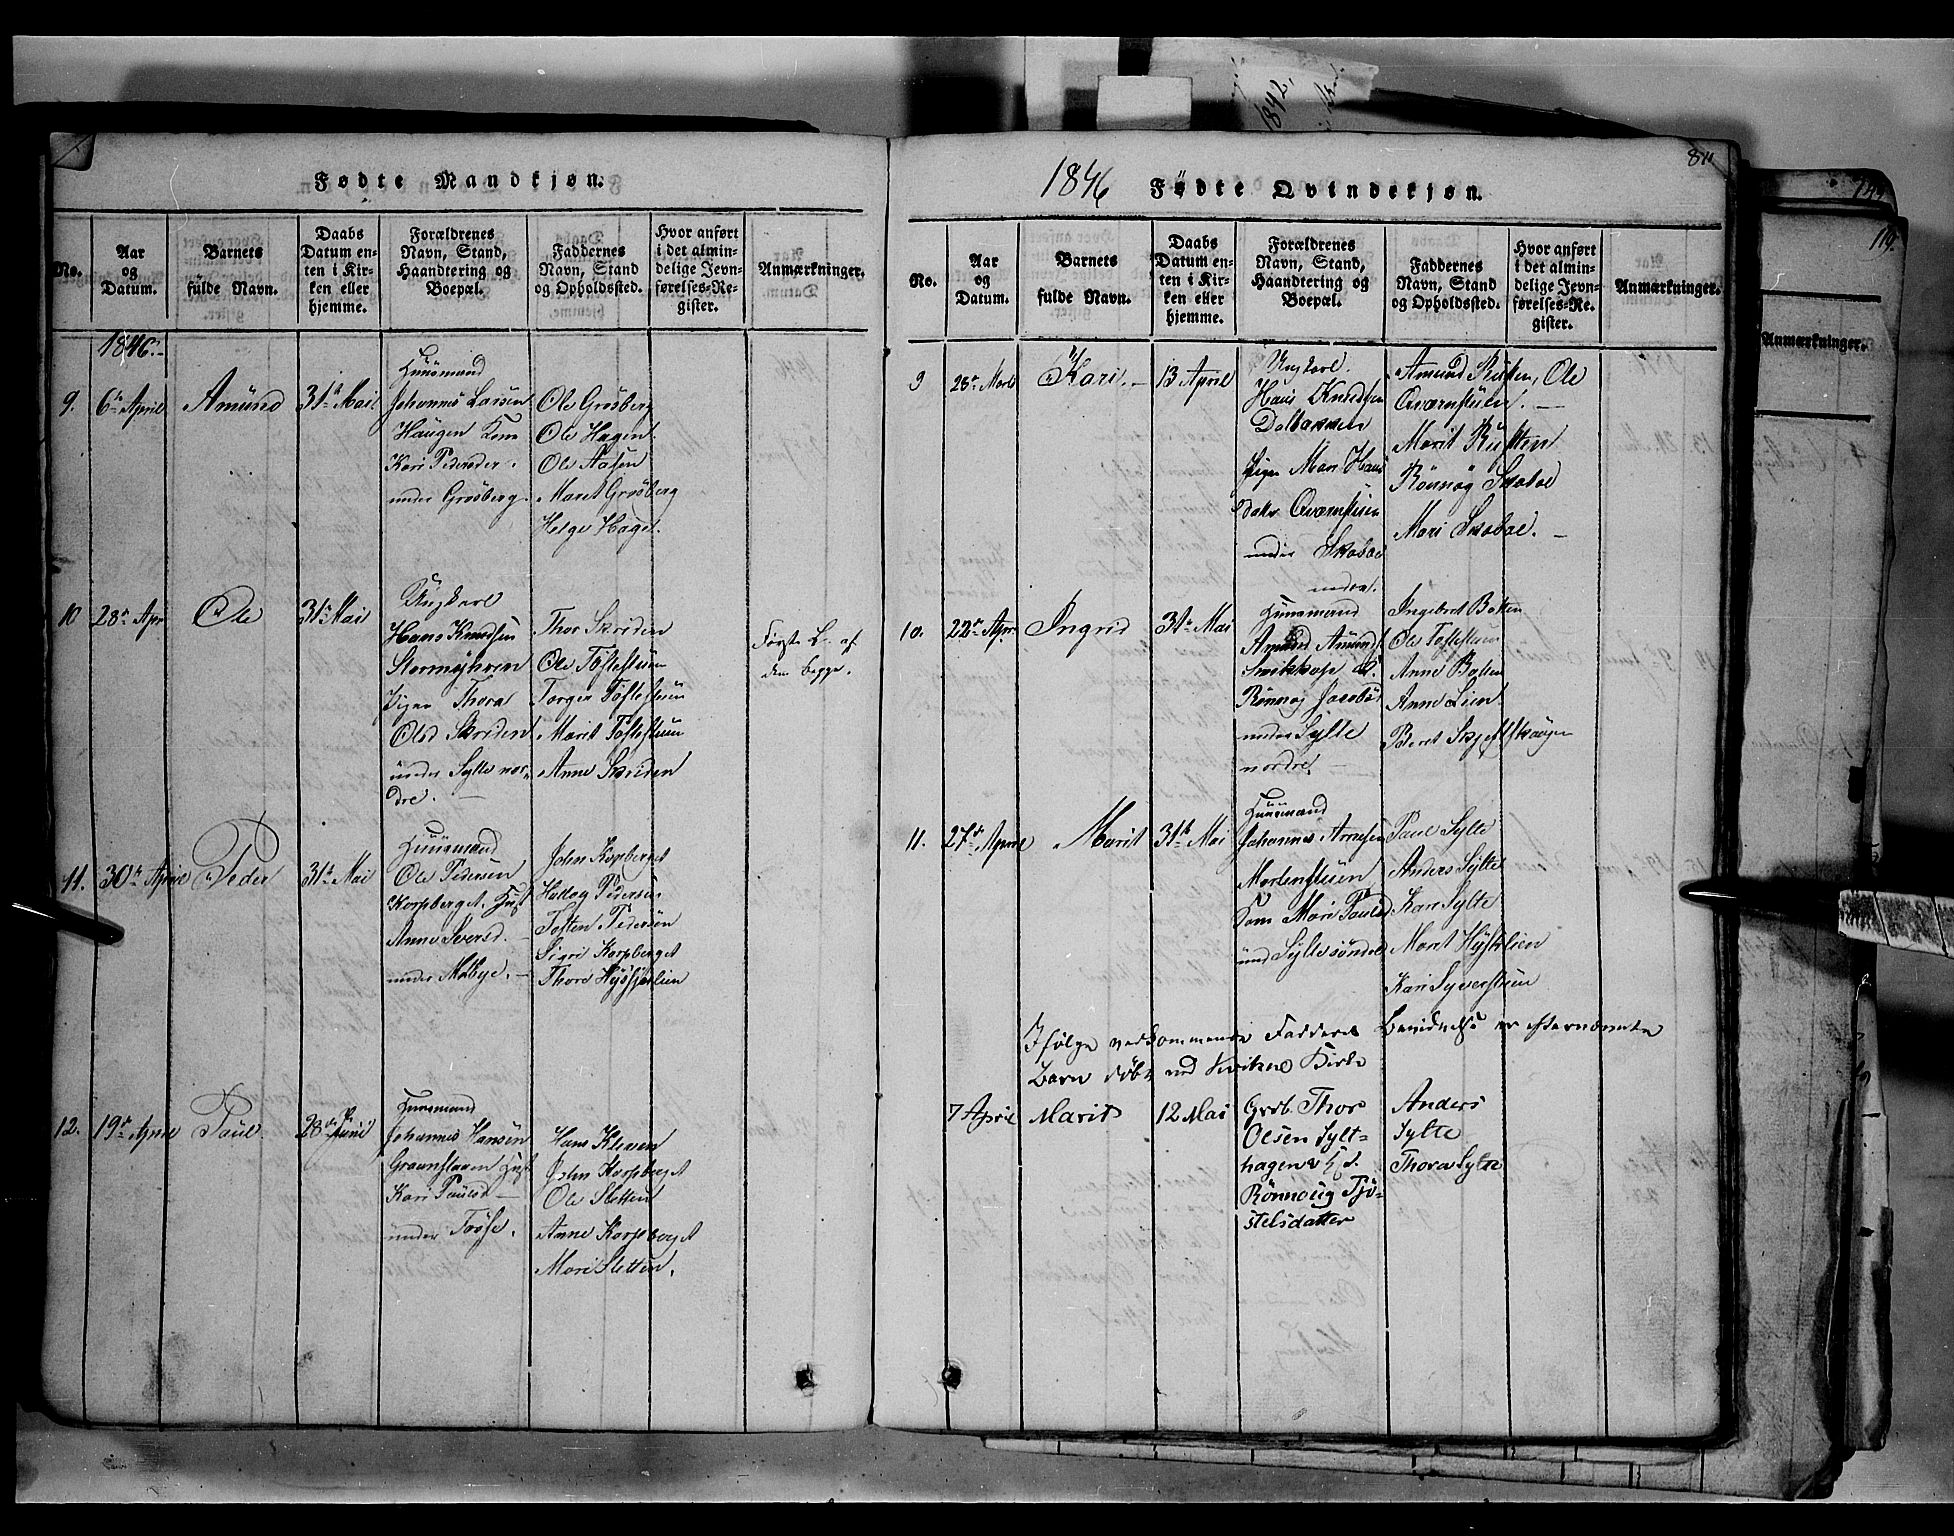 1842,
Fødte Mandkjøn.
No.
Aar
og
Datum.
Barnets
fulde Navn.
Daabs
Datum en-
ten i Kir-
ken eller
hjemme.
Forældrenes
Navn, Stand,
Haandtering og
Boepæl.
Faddernes
Navn, Stand
og Opholdssted.
Hvor anført
i det almin-
delige Jevn-
førelses-Re-
gister.
Anmærkninger.
1846.
9.
6te April
Amund
31te Mai
Huusmand
Johannes Larsen
Haugen Kone
Kari Pedersdr.
under Grosberg.
Ole Grosberg
Ole Hagen
Ole Aasen
Marit Grosberg
Helge Hagen.
10
28de Apr
Ole
31te Mai
Ungkarl
Hans Knudsen
Stormyhren
Pigen Thora
Olsd Skriden
under Sylte nor-
dre.
Thor Skriden
Ole Toftestuen
Torger Toftestuen
Marit Toftestuen
Anne Skriden
Første L. af
dem begge.
11.
30te April
Peder
31te Mai
Huusmand
Ole Pedersen
Korpberget. Hust
Anne Iversd.
under Melbye.
John Korpberget
Hallog Pedersen
Tosten Pedersen
Sigri Korpberget
Thore
12.
19de April
Paul.
28de Junii
Huusmand
Johannes Hansen
Graunstuen Hust
Kari Paulsd
under Tofte.
Hans Kleven
John Korpberget
Ole Sletten
Anne Korpberget
Mari Sletten.
1846
Fødte Qvindekjøn.
811
No.
Aar
og
Datum.
Barnets
fulde Navn.
Daabs
Datum en-
ten i Kir-
ken eller
hjemme.
Forældrenes
Navn, Stand,
Haandtering og
Boepæl.
Faddernes
Navn, Stand
og Opholdssted.
Hvor anført
i det almin-
delige Jevn-
førelses-Re-
gister.
Anmærkninger.
9
28de Marts
Kari.
13 April
Ungkarl.
Hans Knudsen
Dalbakken
Pigen Mari Hans
datter Qværnstuen
under Skaboe
Amund Rusten, Ole
Qværnstuen.
Marit Rusten
Rønnøg Skaboe
Mari Skaboe.
10.
22de Apr.
Ingrid
31te Mai
Huusmand
Amund Amunds.
Rønnøg Jacobsd
under Sylte
nordre.
Ingebret Bakken
Ole Toftestuen
Anne Bakken
Anne Lien
Beret Skjefthaugen
11.
27de April
Marit
31te Mai
Huusmand
Johannes Arnesen
Mortenstuen
Kone Mari Paulsd
und Sylte søndre
Paul Sylte
Anders Sylte
Kari Sylte
Marit
Kari Syverstuen
Ifølge vedkommende Fadderes Bevidnelse er efternævnte
Barn døbt ved Kvikne Kirke
7 April
Marit
12 Mai
Grdb. Thor
Olsen Sylt-
hagen & H.
Rønnoug Tjø-
stelsdatter
Anders
Sylte
Thora Sylte
119.
Anmærkninger.